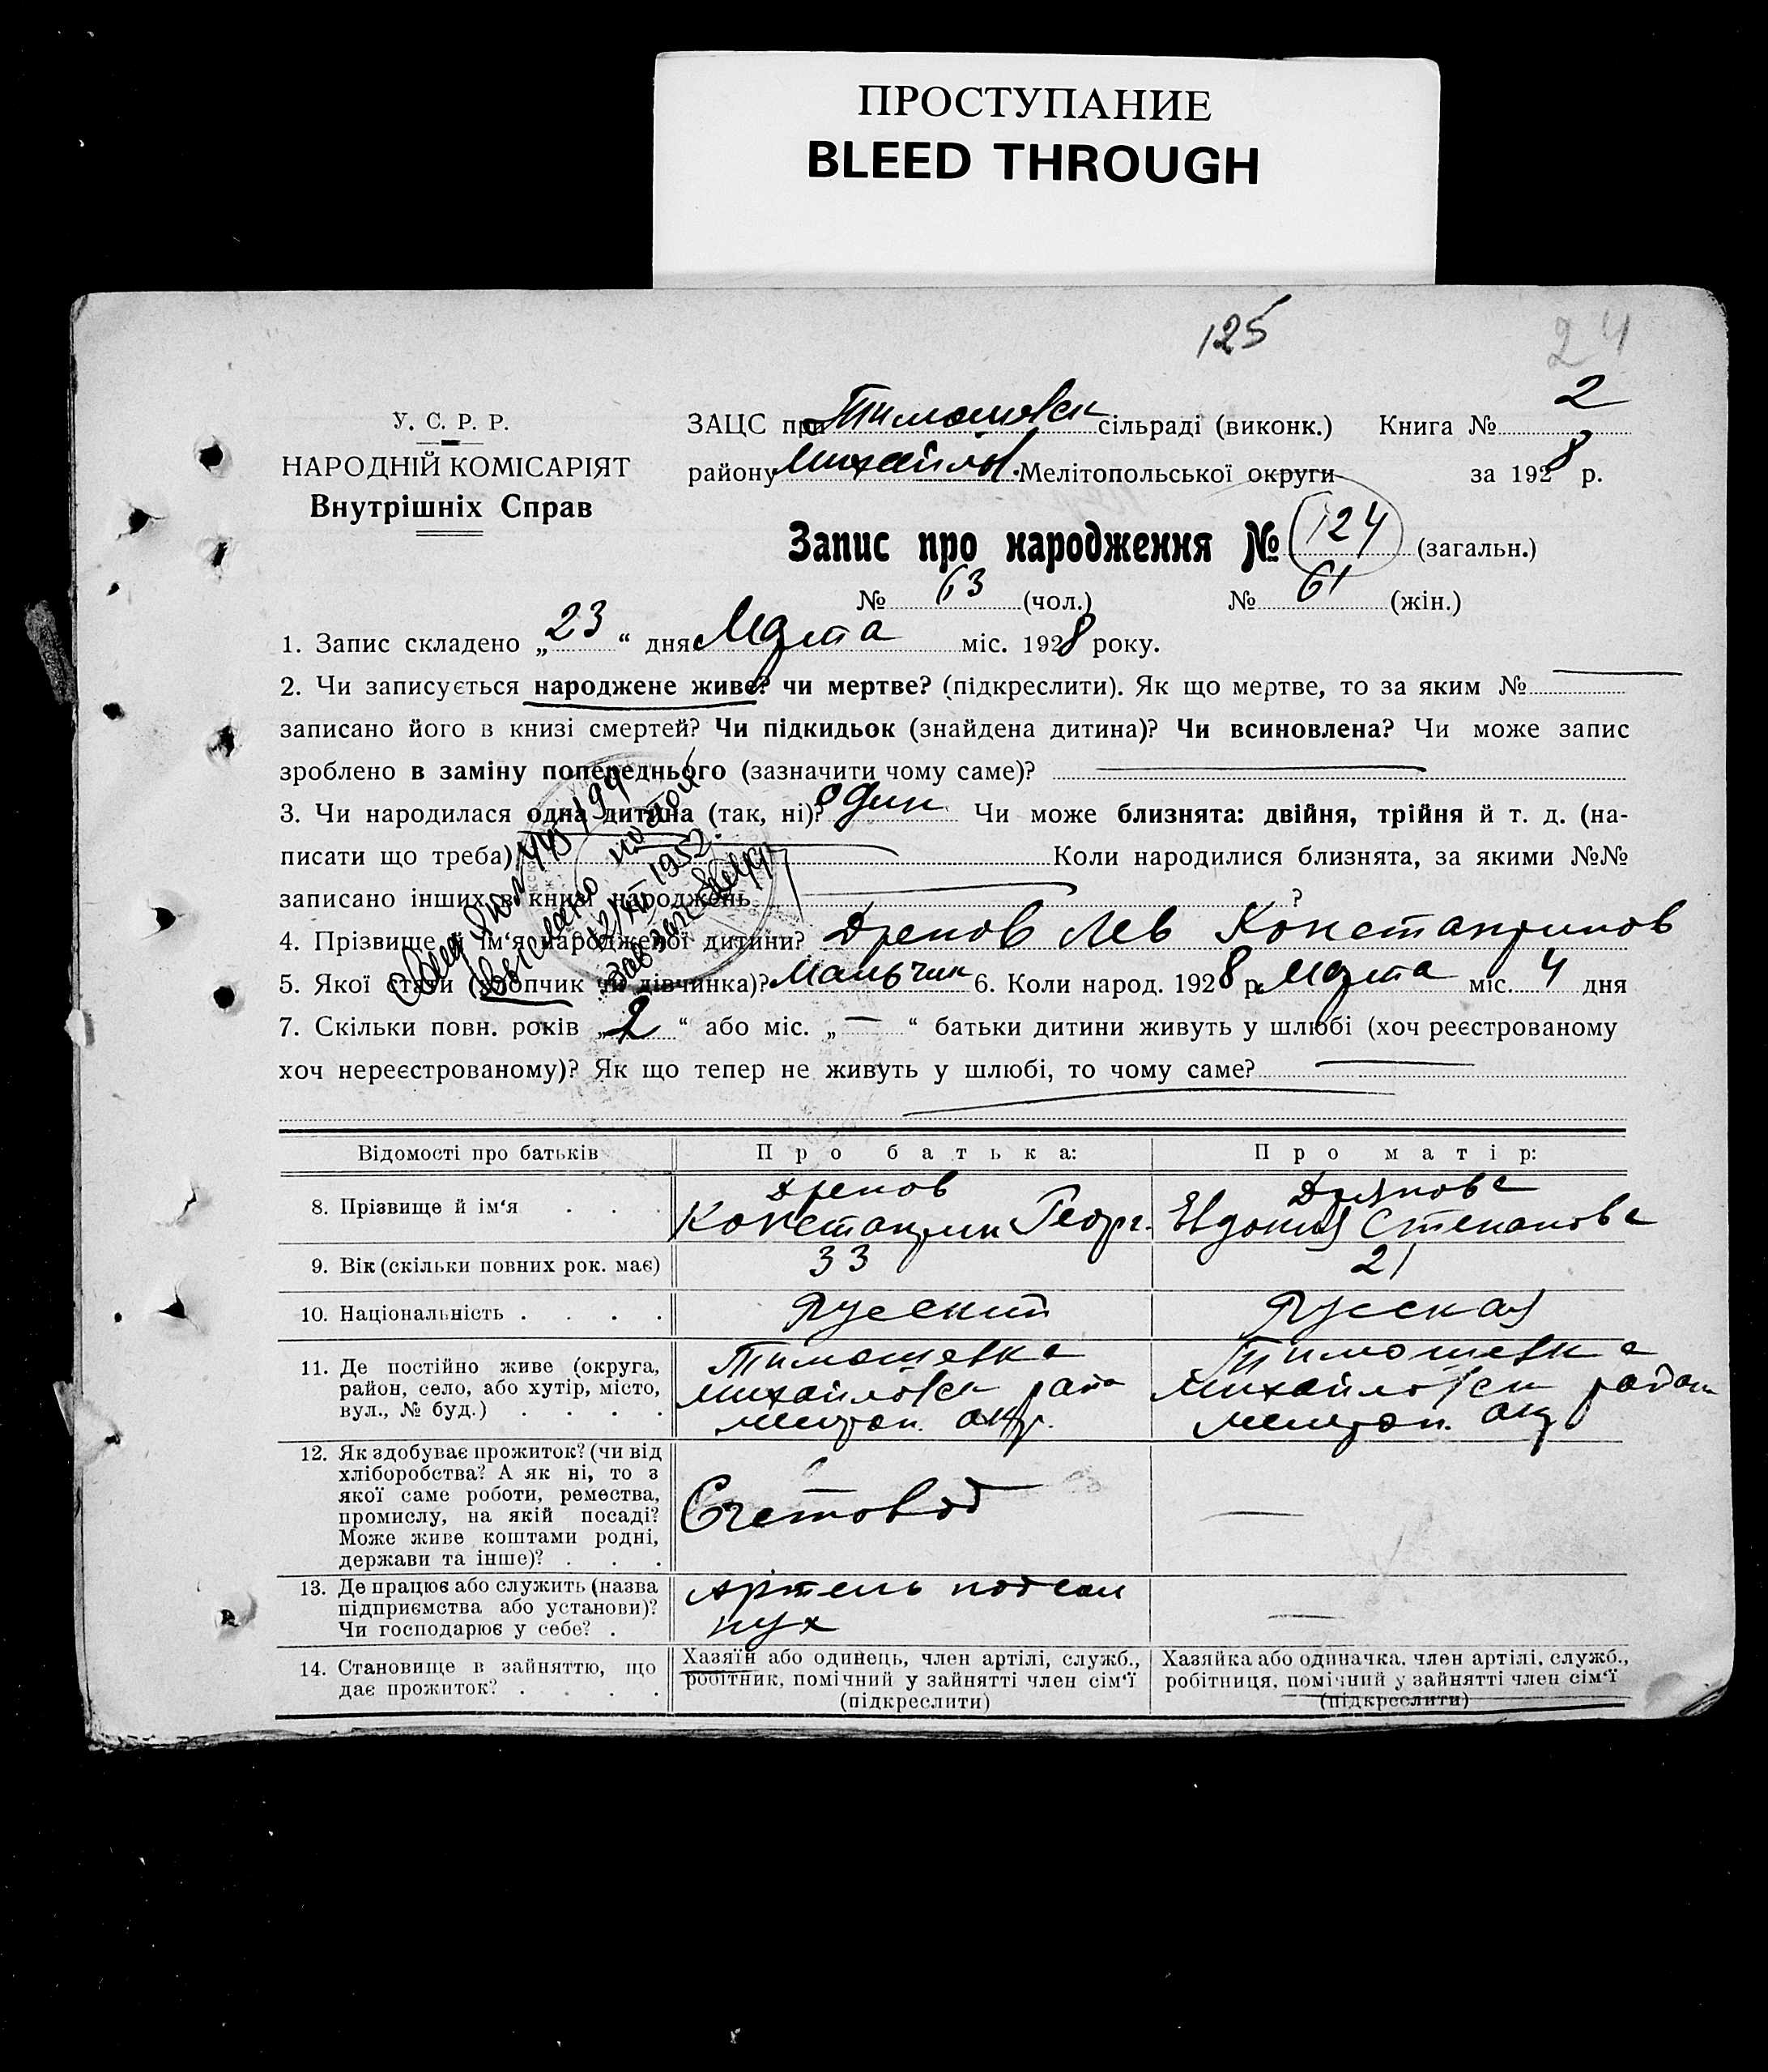 ПРОСТУПАНИЕ
BLEED THROUGH
125
24
У. С. Р. Р.
НАРОДНІЙ КОМІСАРІЯТ
Внутрішніх Справ
ЗАЦС при Тимошевск сільраді (виконк.) Книга № 2
району Михайлов. Мелітопольської округи за 1928 р.
Запис про народження № 124 (загальн.)
№ 63 (чол.) № 61 (жін.)
1. Запис складено „23“ дня Марта міс. 1928 року.
2. Чи записується народжене живе? чи мертве? (підкреслити). Як що мертве, то за яким №
записано його в книзі смертей? Чи підкидьок (знайдена дитина)? Чи всиновлена? Чи може запис
зроблено в заміну попереднього (зазначити чому саме)?
3. Чи народилася одна дитина (так, ні)? один Чи може близнята: двійня, трійня й т. д. (на-
писати що треба) Коли народилися близнята, за якими №№
записано інших в книзі народжень ?
4. Прізвище й ім‘я народженої дитини? Дренов Лев Константинов
5. Якої стати (хлопчик чи дівчинка)? Мальчик 6. Коли народ. 1928 р. Марта міс. 4 дня
7. Скільки повн. років „2“ або міс. „—“ батьки дитини живуть у шлюбі (хоч реєстрованому
хоч нереєстрованому)? Як що тепер не живуть у шлюбі, то чому саме?
Відомості про батьків Про батька: Про матір:
8. Прізвище й ім‘я . . . Дренов Константин Георг. Евдокия Степанова
9. Вік (скільки повних рок. має) 33 21
10. Національність . . . . Русский Русская
11. Де постійно живе (округа,
район, село, або хутір, місто,
вул., № буд.) . . . .
Тимошевка
Михайловск райо
Мелитоп. окр.
Тимошевка
Михайловск район
Мелитоп. окр
12. Як здобуває прожиток? (чи від
хліборобства? А як ні, то з
якої саме роботи, ремества,
промислу, на якій посаді?
Може живе коштами родні,
держави та інше)? . . .
Счетовод
—
13. Де працює або служить (назва
підприємства або установи)?
Чи господарює у себе? .
Артель
—
14. Становище в зайняттю, що
дає прожиток? . . . .
Хазяїн або одинець, член артілі, служб.,
робітник, помічний у зайнятті член сім‘ї
(підкреслити)
Хазяйка або одиначка, член артілі, служб.,
робітниця, помічний у зайнятті член сім‘ї
(підкреслити)